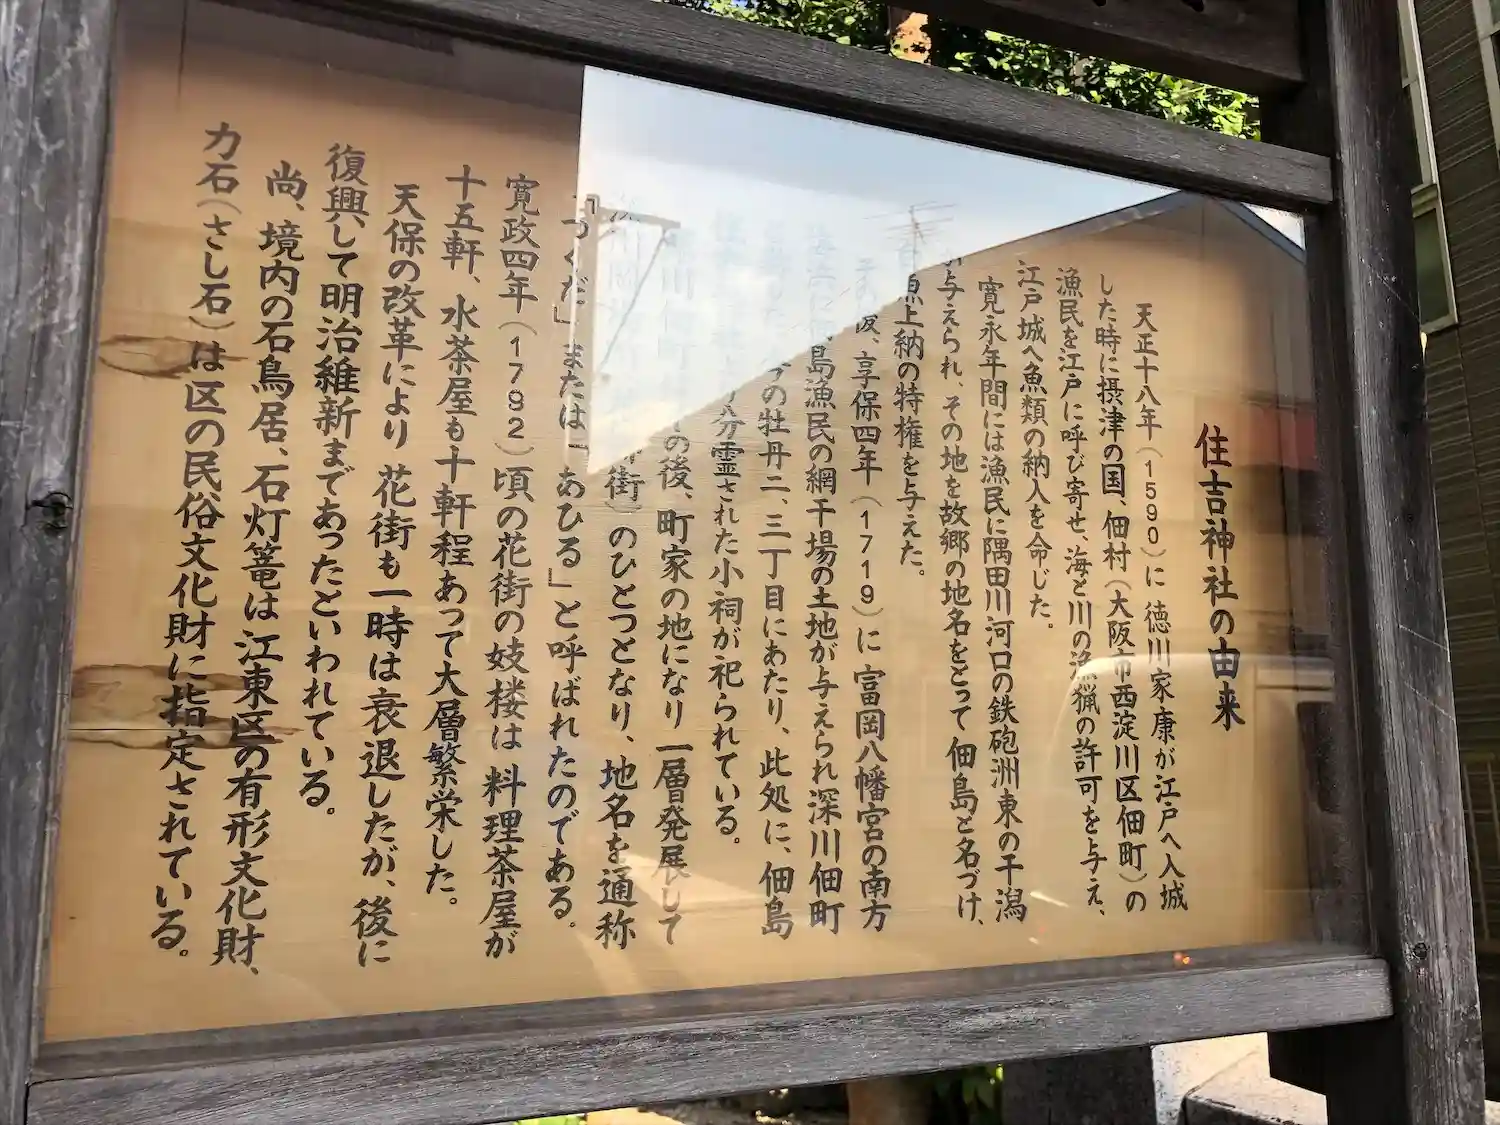 住吉神社の由来
天正十八年（1590）に 徳川家康が江戸へ入城
した時に摂津の国、佃村（大阪市西淀川区佃町）の
漁民を江戸に呼び寄せ、海と川の漁猟の許可を与え、
江戸城へ魚類の納入を命じた。
寛永年間には漁民に隅田川河口の鉄砲洲東の干潟
与えられ、その地を故郷の地名をとって 佃島と名づけ、
魚上納の特権を与えた。
享保四年（1719）に 富岡八幡宮の南方
島漁民の網干場の土地が与えられ 深川佃町
の牡丹二、三丁目にあたり、此処に、佃島
分霊された小祠が祀られている。
の後、町家の地になり 一層発展して
街）のひとつとなり、地名を通称
「つくだ」または「あひる」と呼ばれたのである。
寛政四年（1792）頃の花街の妓楼は 料理茶屋が
十五軒、水茶屋も十軒程あって大層繁栄した。
天保の改革により 花街も一時は衰退したが、後に
復興して明治維新まであったといわれている。
尚、境内の石鳥居、石灯篭は江東区の有形文化財、
力石（さし石）は区の民俗文化財に指定されている。